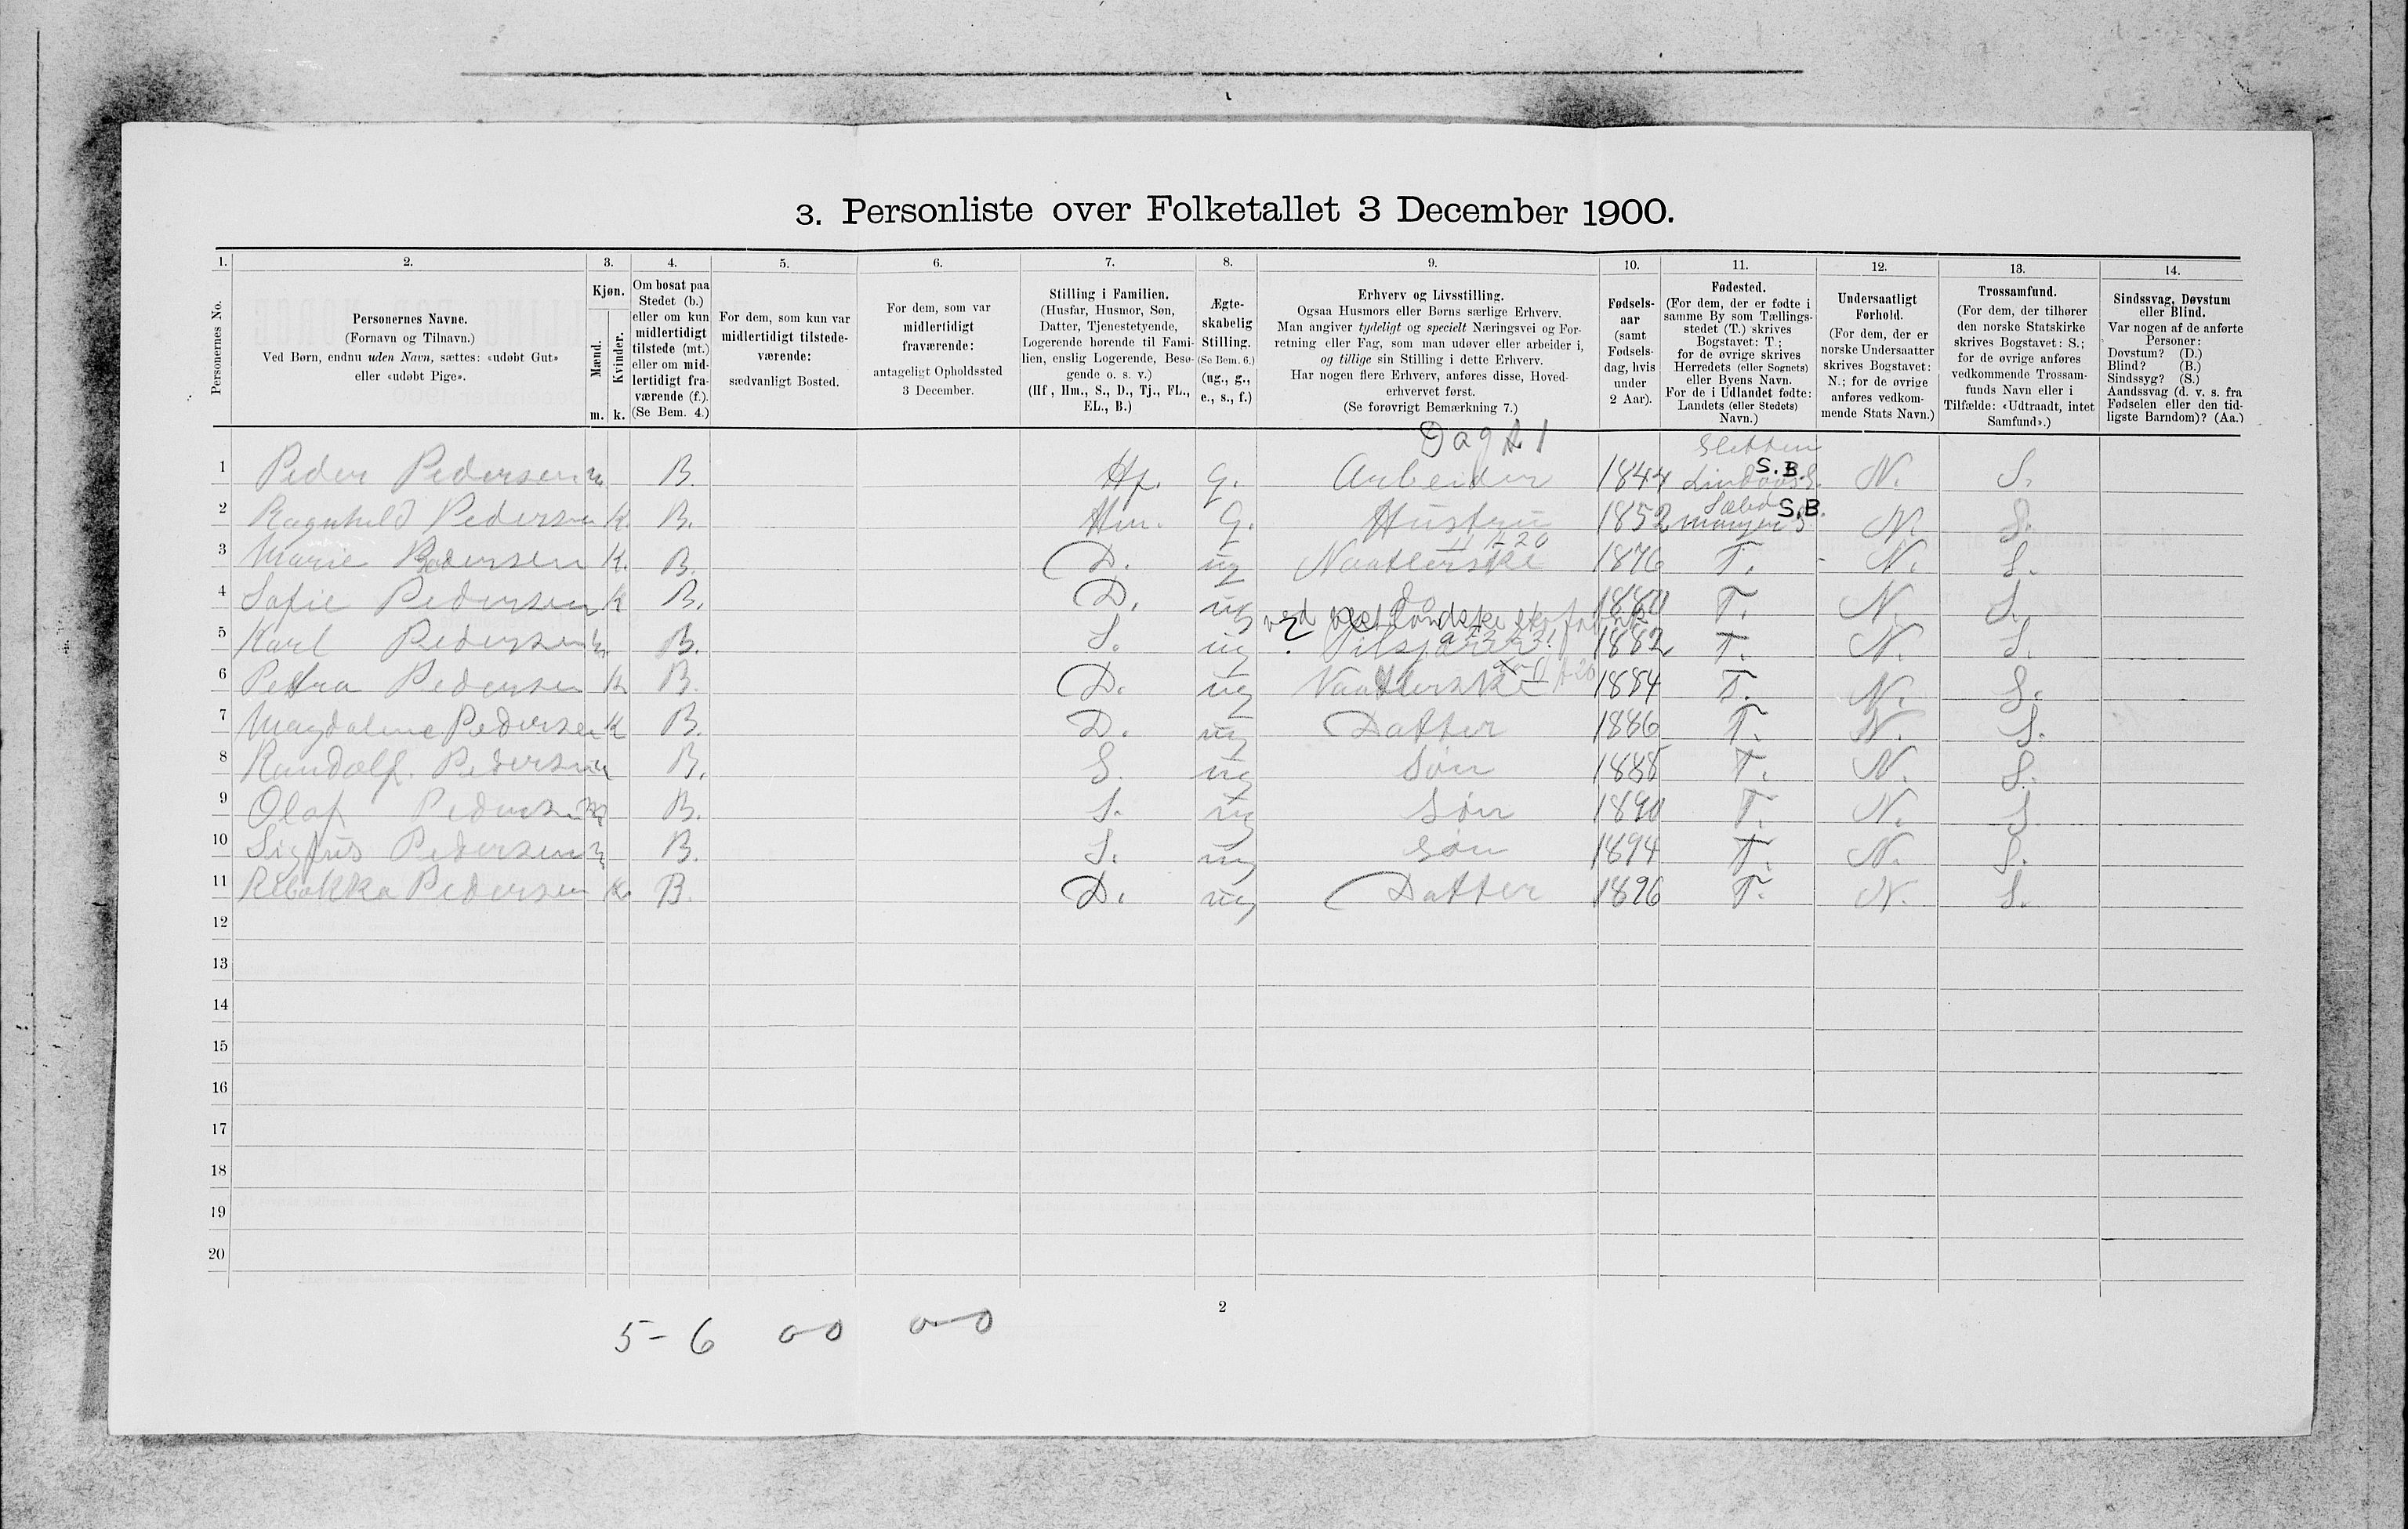 3. Personliste over Folketallet 3 December 1900.
1. 2. 3. 4. 5. 6. 7. 8. 9. 10. 11. 12. 13. 14.
Personernes No.
Personernes Navne.
(Fornavn og Tilnavn.)
Ved Børn, endnu uden Navn, sættes: «udøbt Gut»
eller «udøbt Pige».
Kjøn.
Mænd.
Kvinder.
m. k.
Om bosat paa
Stedet (b.)
eller om kun
midlertidigt
tilstede (mt.)
eller om mid-
lertidigt fra-
værende (f.).
(Se Bem. 4.)
For dem, som kun var
midlertidigt tilstede-
værende:
sædvanligt Bosted.
For dem, som var
midlertidigt
fraværende:
antageligt Opholdssted
3 December.
Stilling i Familien.
(Husfar, Husmor, Søn,
Datter, Tjenestetyende,
Logerende hørende til Fami-
lien, enslig Logerende, Besø-
gende o. s. v.)
(Hf, Hm., S., D., Tj., FL.,
EL., B.)
Ægte-
skabelig
Stilling.
(Se Bem. 6.)
(ug., g.,
e., s., f.)
Erhverv og Livsstilling.
Ogsaa Husmors eller Børns særlige Erhverv.
Man angiver tydeligt og specielt Næringsvei og For-
retning eller Fag, som man udøver eller arbeider i,
og tillige sin Stilling i dette Erhverv.
Har nogen flere Erhverv, anføres disse, Hoved-
erhvervet først.
(Se forøvrigt Bemærkning 7.)
Fødsels-
aar
(samt
Fødsels-
dag, hvis
under
2 Aar).
Fødested.
(For dem, der er fødte i
samme By som Tællings-
stedet (T.) skrives
Bogstavet: T.;
for de øvrige skrives
Herredets (eller Sognets)
eller Byens Navn.
For de i Udlandet fødte:
Landets (eller Stedets)
Navn.)
Undersaatligt
Forhold.
(For dem, der er
norske Undersaatter
skrives Bogstavet:
N.; for de øvrige
anføres vedkom-
mende Stats Navn.)
Trossamfund.
(For dem, der tilhører
den norske Statskirke
skrives Bogstavet: S.;
for de øvrige anføres
vedkommende Trossam-
funds Navn eller i
Tilfælde: «Udtraadt, intet
Samfund».)
Sindssvag, Døvstum
eller Blind.
Var nogen af de anførte
Personer:
Døvstum? (D.)
Blind? (B.)
Sindssyg? (S.)
Aandssvag (d. v. s. fra
Fødselen eller den tid-
ligste Barndom)? (Aa.)
DagA1 Sletten
1 Peder Pedersen m B. Hf. g. Arbeider 1844 Lindaas S. S.B. N. S.
Sæbø
2 Ragnhild Pedersen k. B. Hm. G. Hustru 1852 Manger S S.B. N. S.
11 A 20
3 Marie Pedersen K. B. D. ug Naatlerske 1876 T. N. S.
4 Sofie Pedersen k B. D. ug do 1880 T. N. S.
ved vestlandske skofabrik
5 Karl Pedersen m B. S. ug 1882 T. N. S.
6 Petra Pedersen k B. D. ug Naatlerske 1884 T. N. S.
7 Magdalene Pedersen k B. D. ug Datter 1886 T. N. S.
8 Randolf. Pedersen m B. S. ug Søn 1888 T. N. S.
9 Olaf Pedersen m B. S. ug Søn 1890 T. N. S
10 Sigfus Pedersen m B. S. ug Søn 1894 T. N. S.
11 Rebekka Pedersen k. B. D. ug Datter 1896 T. N. S.
12
13
14
15
16
17
18
19
20
2
5-6 0-0 0-0